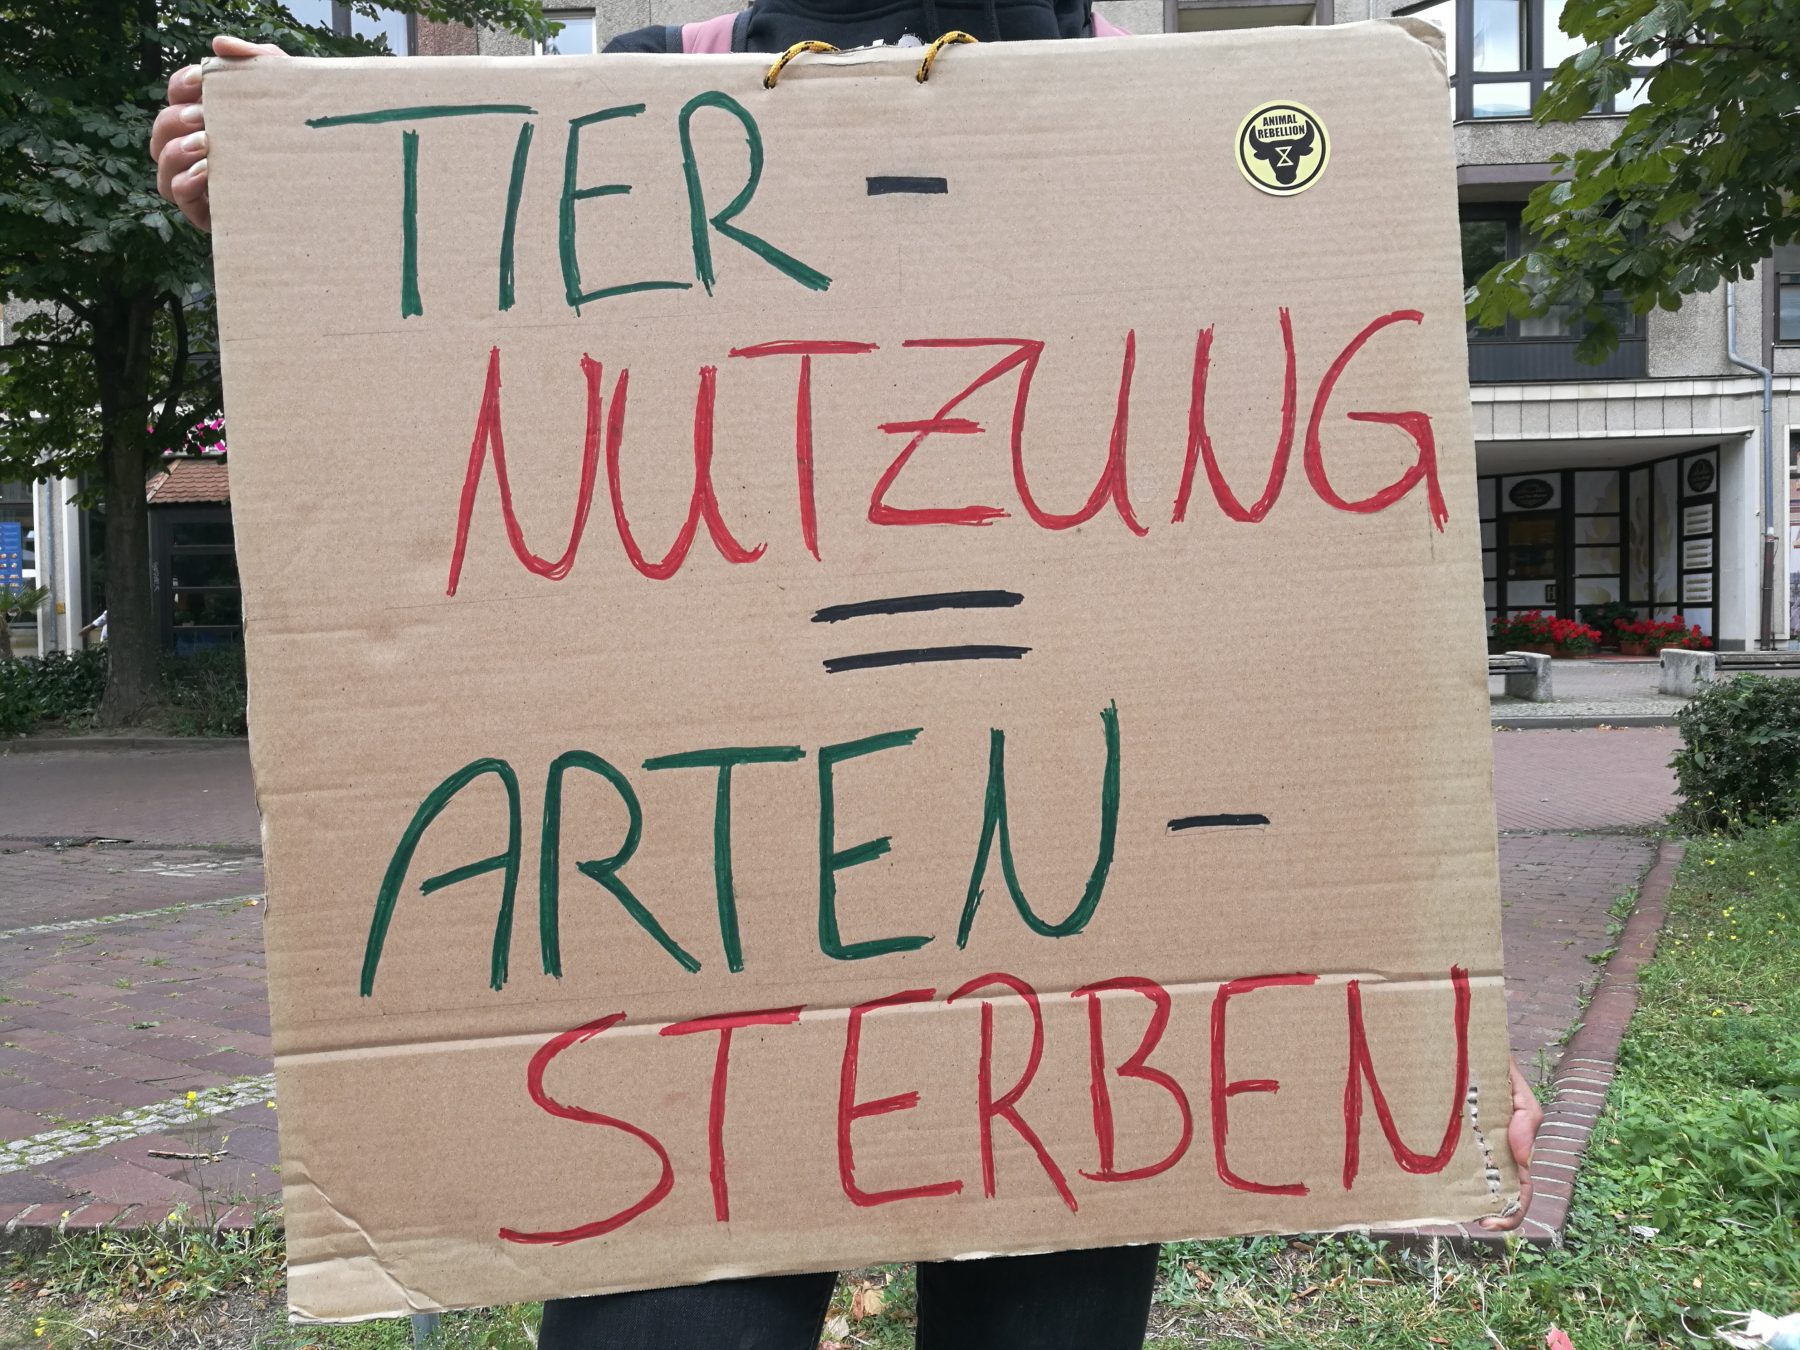 TIER-
ANIMAL
REBELLION
NUTZUNG
=
ARTEN-
STERBEN